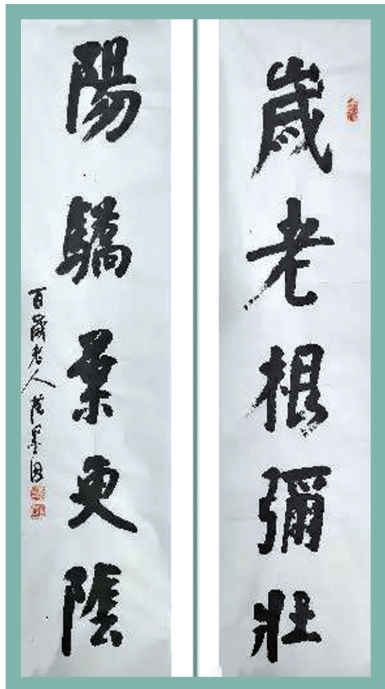 歲老根彌壯
陽驕葉更陰
百歲老人